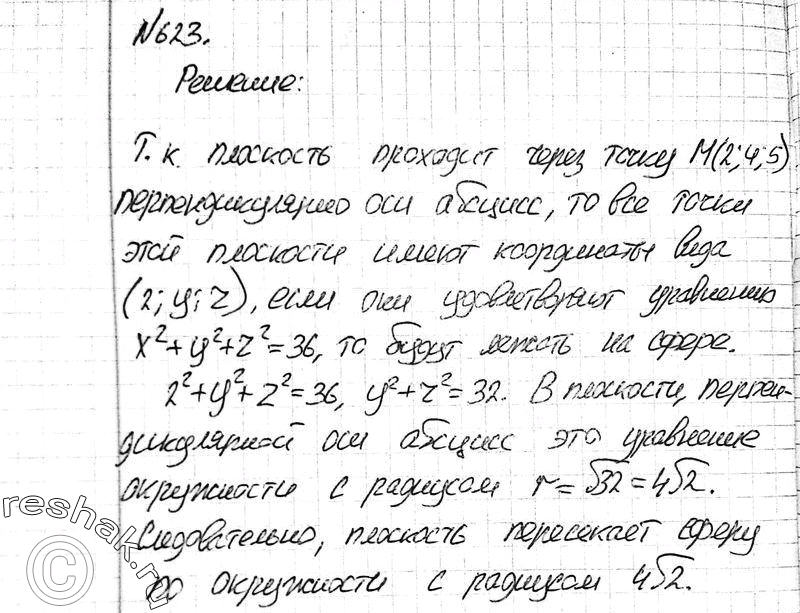 №623.
Решение:
Т.к. плоскость проходит через точку М(2;4;5)
перпендикулярно оси абсцисс, то все точки
этой плоскости имеют координаты вида
(2; y; z), если они удовлетворяют уравнению
x²+y²+z²=36, то будут лежать на сфере.
2²+y²+z²=36, y²+z²=32. В плоскости, перпен-
дикулярной оси абсцисс это уравнение
окружности с радиусом r=√32=4√2.
Следовательно, плоскость пересекает сферу
по окружности с радиусом 4√2.
reshak.ru
©